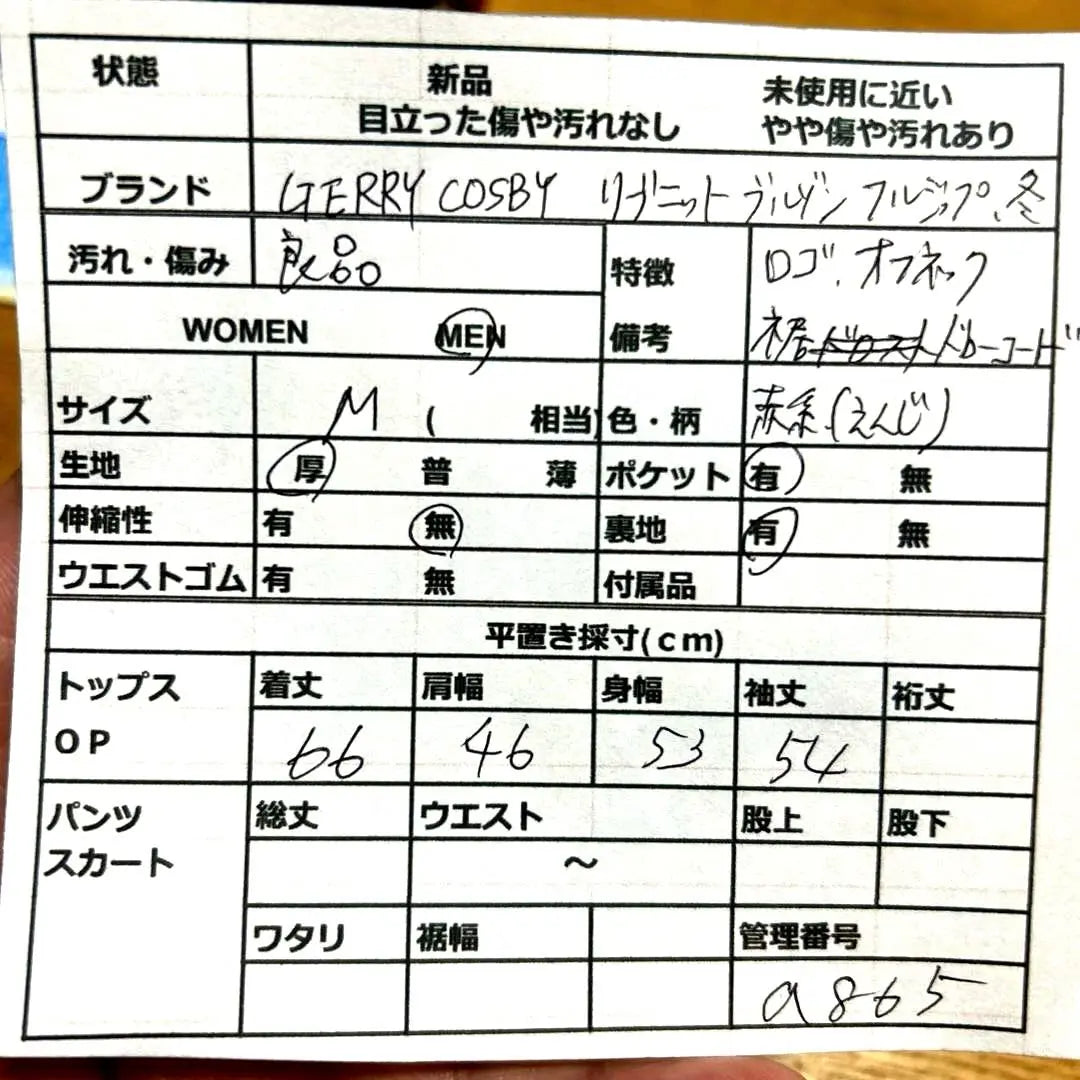 状態 新品 未使用に近い
目立った傷や汚れなし やや傷や汚れあり
ブランド GERRY COSBY リブニット ブルゾン フルジップ、冬
汚れ・傷み 良品 特徴 ロゴ、オフネック
WOMEN MEN 備考 裾 ドローコード
サイズ M ( 相当) 色・柄 赤系(えんじ)
生地 厚 普 薄 ポケット 有 無
伸縮性 有 無 裏地 有 無
ウエストゴム 有 無 付属品
平置き採寸(cm)
トップス 着丈 肩幅 身幅 袖丈 裄丈
OP 66 46 53 54
パンツ 総丈 ウエスト 股上 股下
スカート ～
ワタリ 裾幅 管理番号
a865